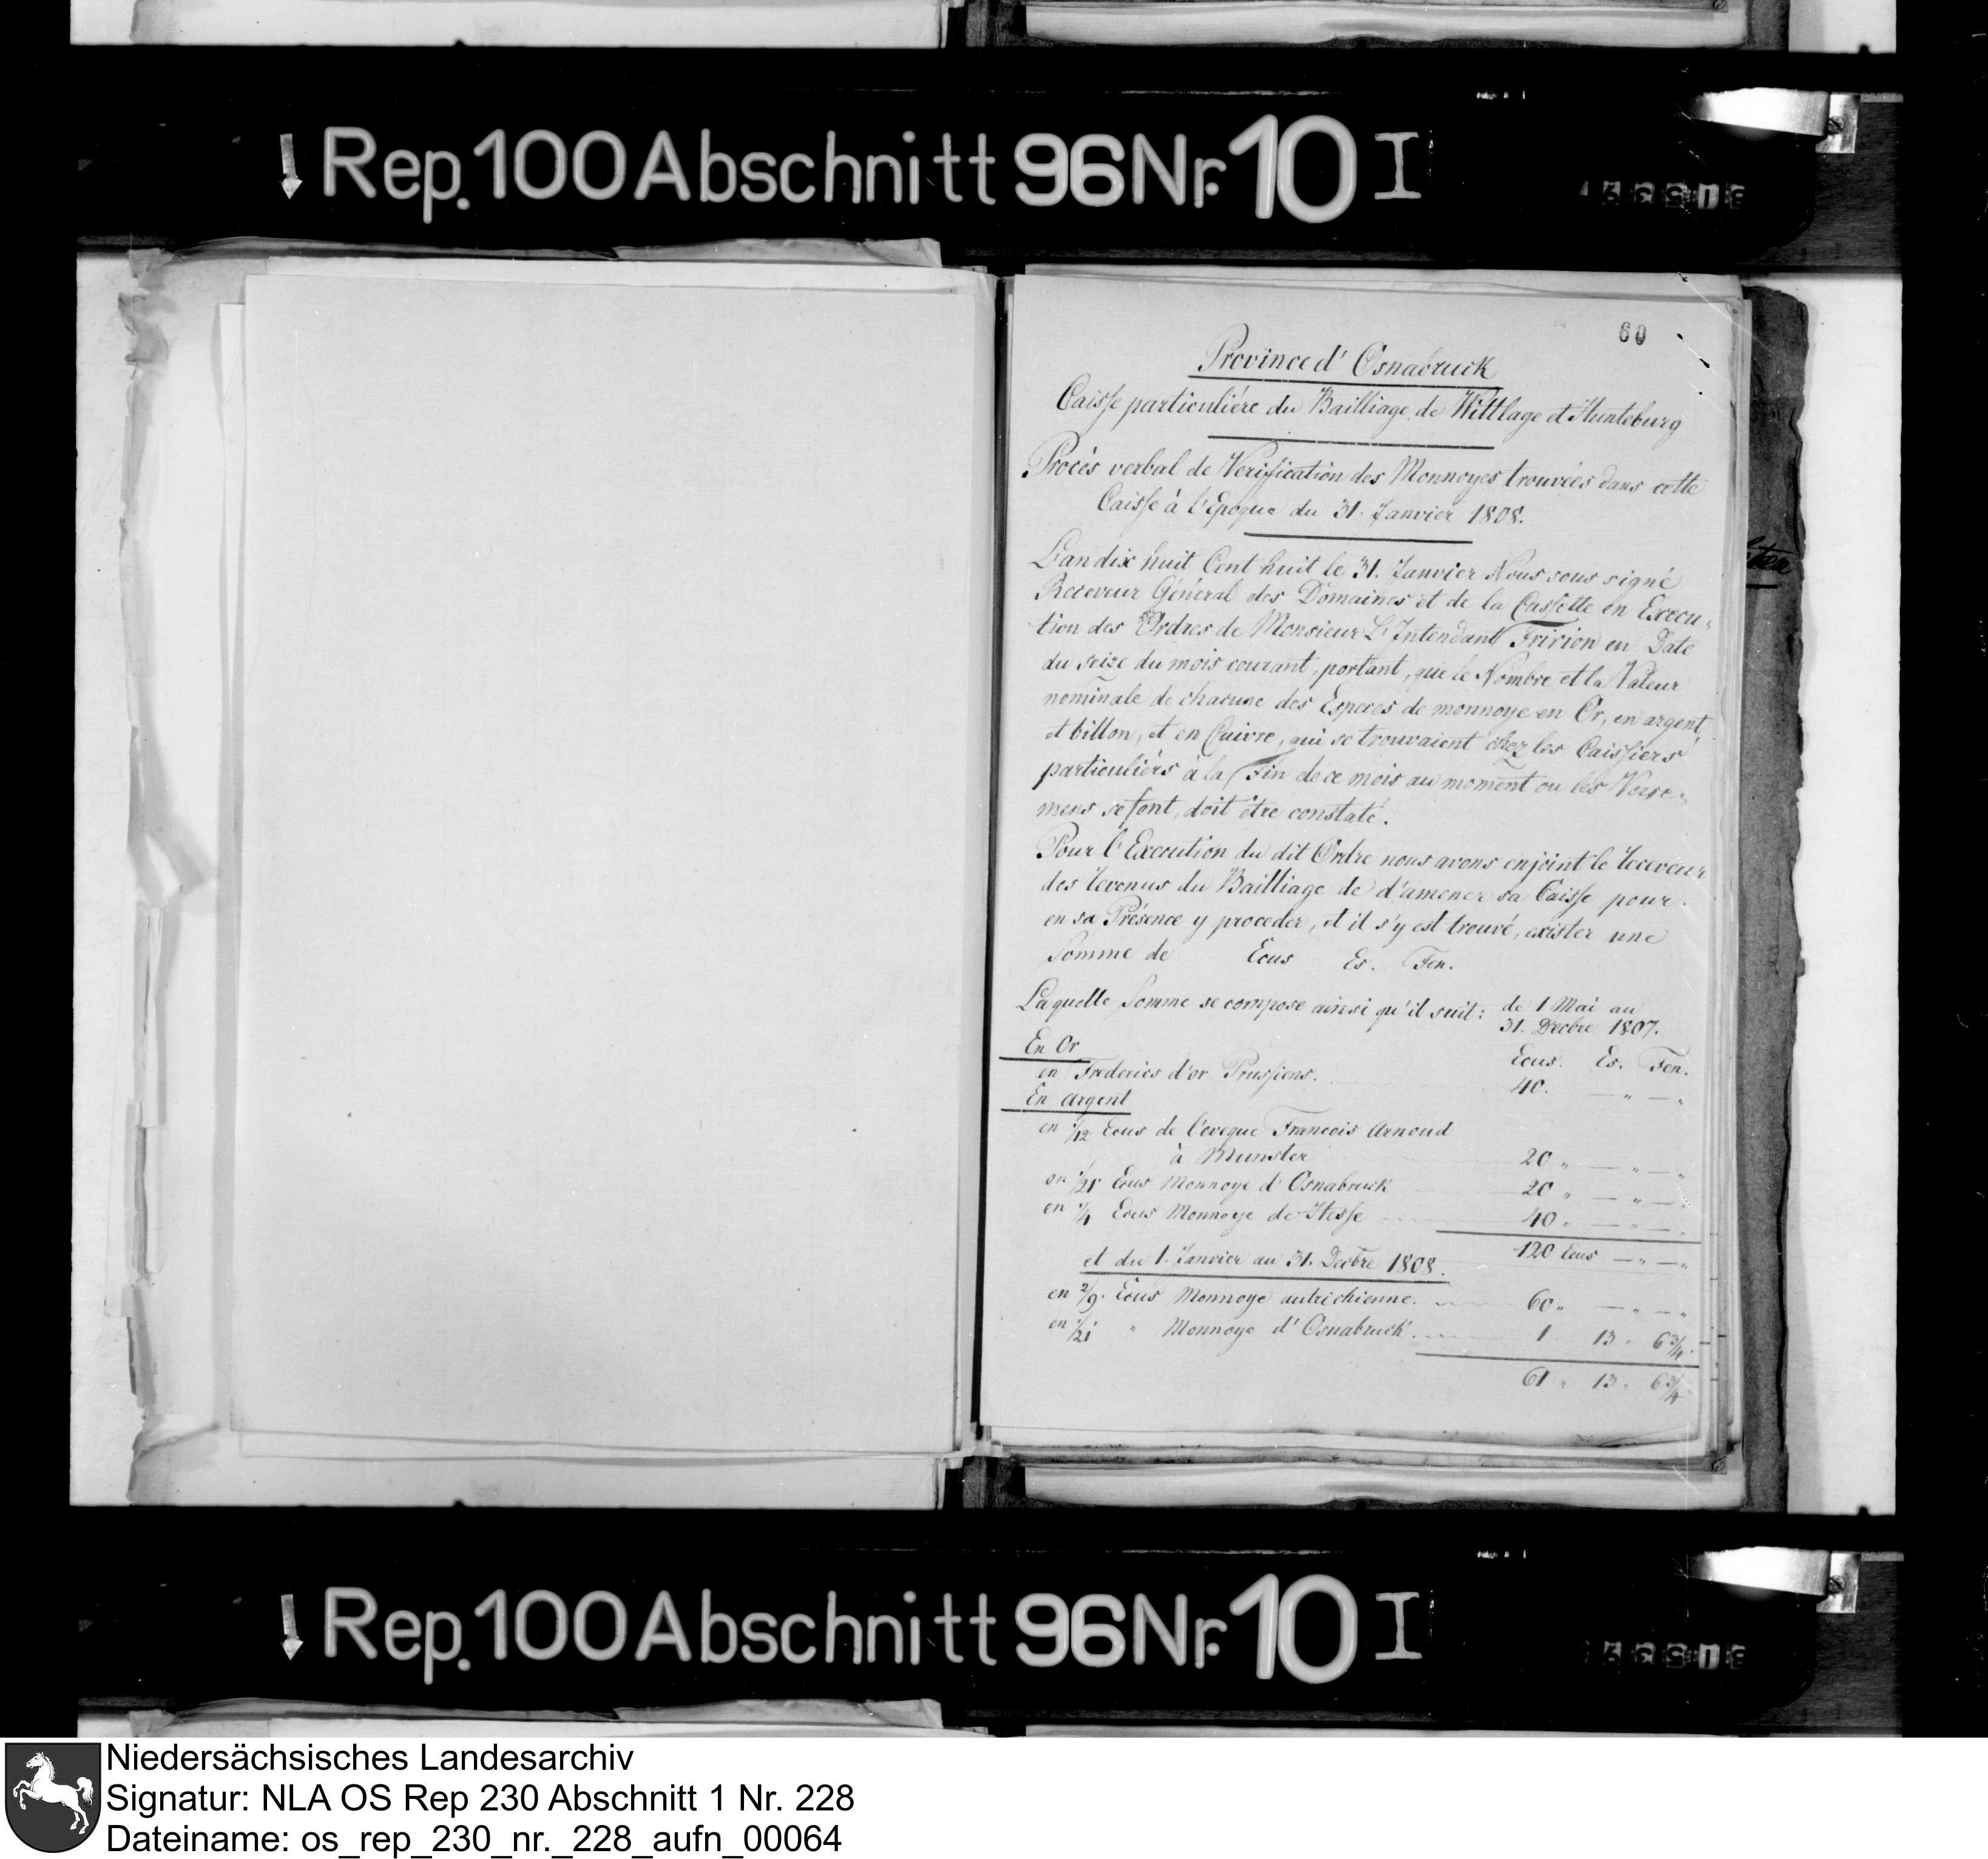 Rep. 100 Abschnitt 96 Nr. 10 I
60
Province d' Osnabruck
Caisse particuliére du Bailliage de Wittlage et Hunteburg
Procès verbal de Verification des Monnoyes trouvées dans cette
Caisse à l'Epoque du 31. Janvier 1808.
L'an dix huit Cent huit le 31. Janvier Nous sous signé
Receveur Général des Domaines et de la Cassette en Execu-
tion des Ordres de Monsieur L'Intendant Fririon en Date
du seize du mois courant, portant, que le Nombre et la Valeur
nominale de chacune des Especes de monnoye en Or, en argent
et billon, et en Cuivre, qui se trouvaient chez les Caissiers
particuliérs à la Fin de ce mois au moment ou les Verse-
mens se font, doit être constaté.
Pour l'Execution du dit Ordre nous avons enjoint le Receveur
des Revenus du Bailliage de d'amener sa Caisse pour
en sa Présence y proceder, et il s'y est trouvé, exister une
Somme de Ecus Es. Fen.
Laquelle Somme se compose ainsi qu'il suit: de 1 Mai au
31. Decbre 1807.
En Or
Ecus. Es. Fen.
en Frederics d'or Prussiens. 40. — " — "
En argent
en 1/12 Ecus de l'eveque Francois Arnoud
à Munster 20 " — " — "
en 1/21 Ecus Monnoye d'Osnabruck 20 " — " — "
en 1/4 Ecus Monnoye de Hesse 40 " — " — "
120 Ecus — " — "
et du 1. Janvier au 31. Decbre 1808.
en 2/9. Ecus Monnoye autrichienne. 60 " — " — "
en 1/21 " Monnoye d'Osnabruck. 1. 13. 6 3/4.
61 " 13 " 6 3/4
Rep. 100 Abschnitt 96 Nr. 10 I
Niedersächsisches Landesarchiv
Signatur: NLA OS Rep 230 Abschnitt 1 Nr. 228
Dateiname: os_rep_230_nr._228_aufn_00064